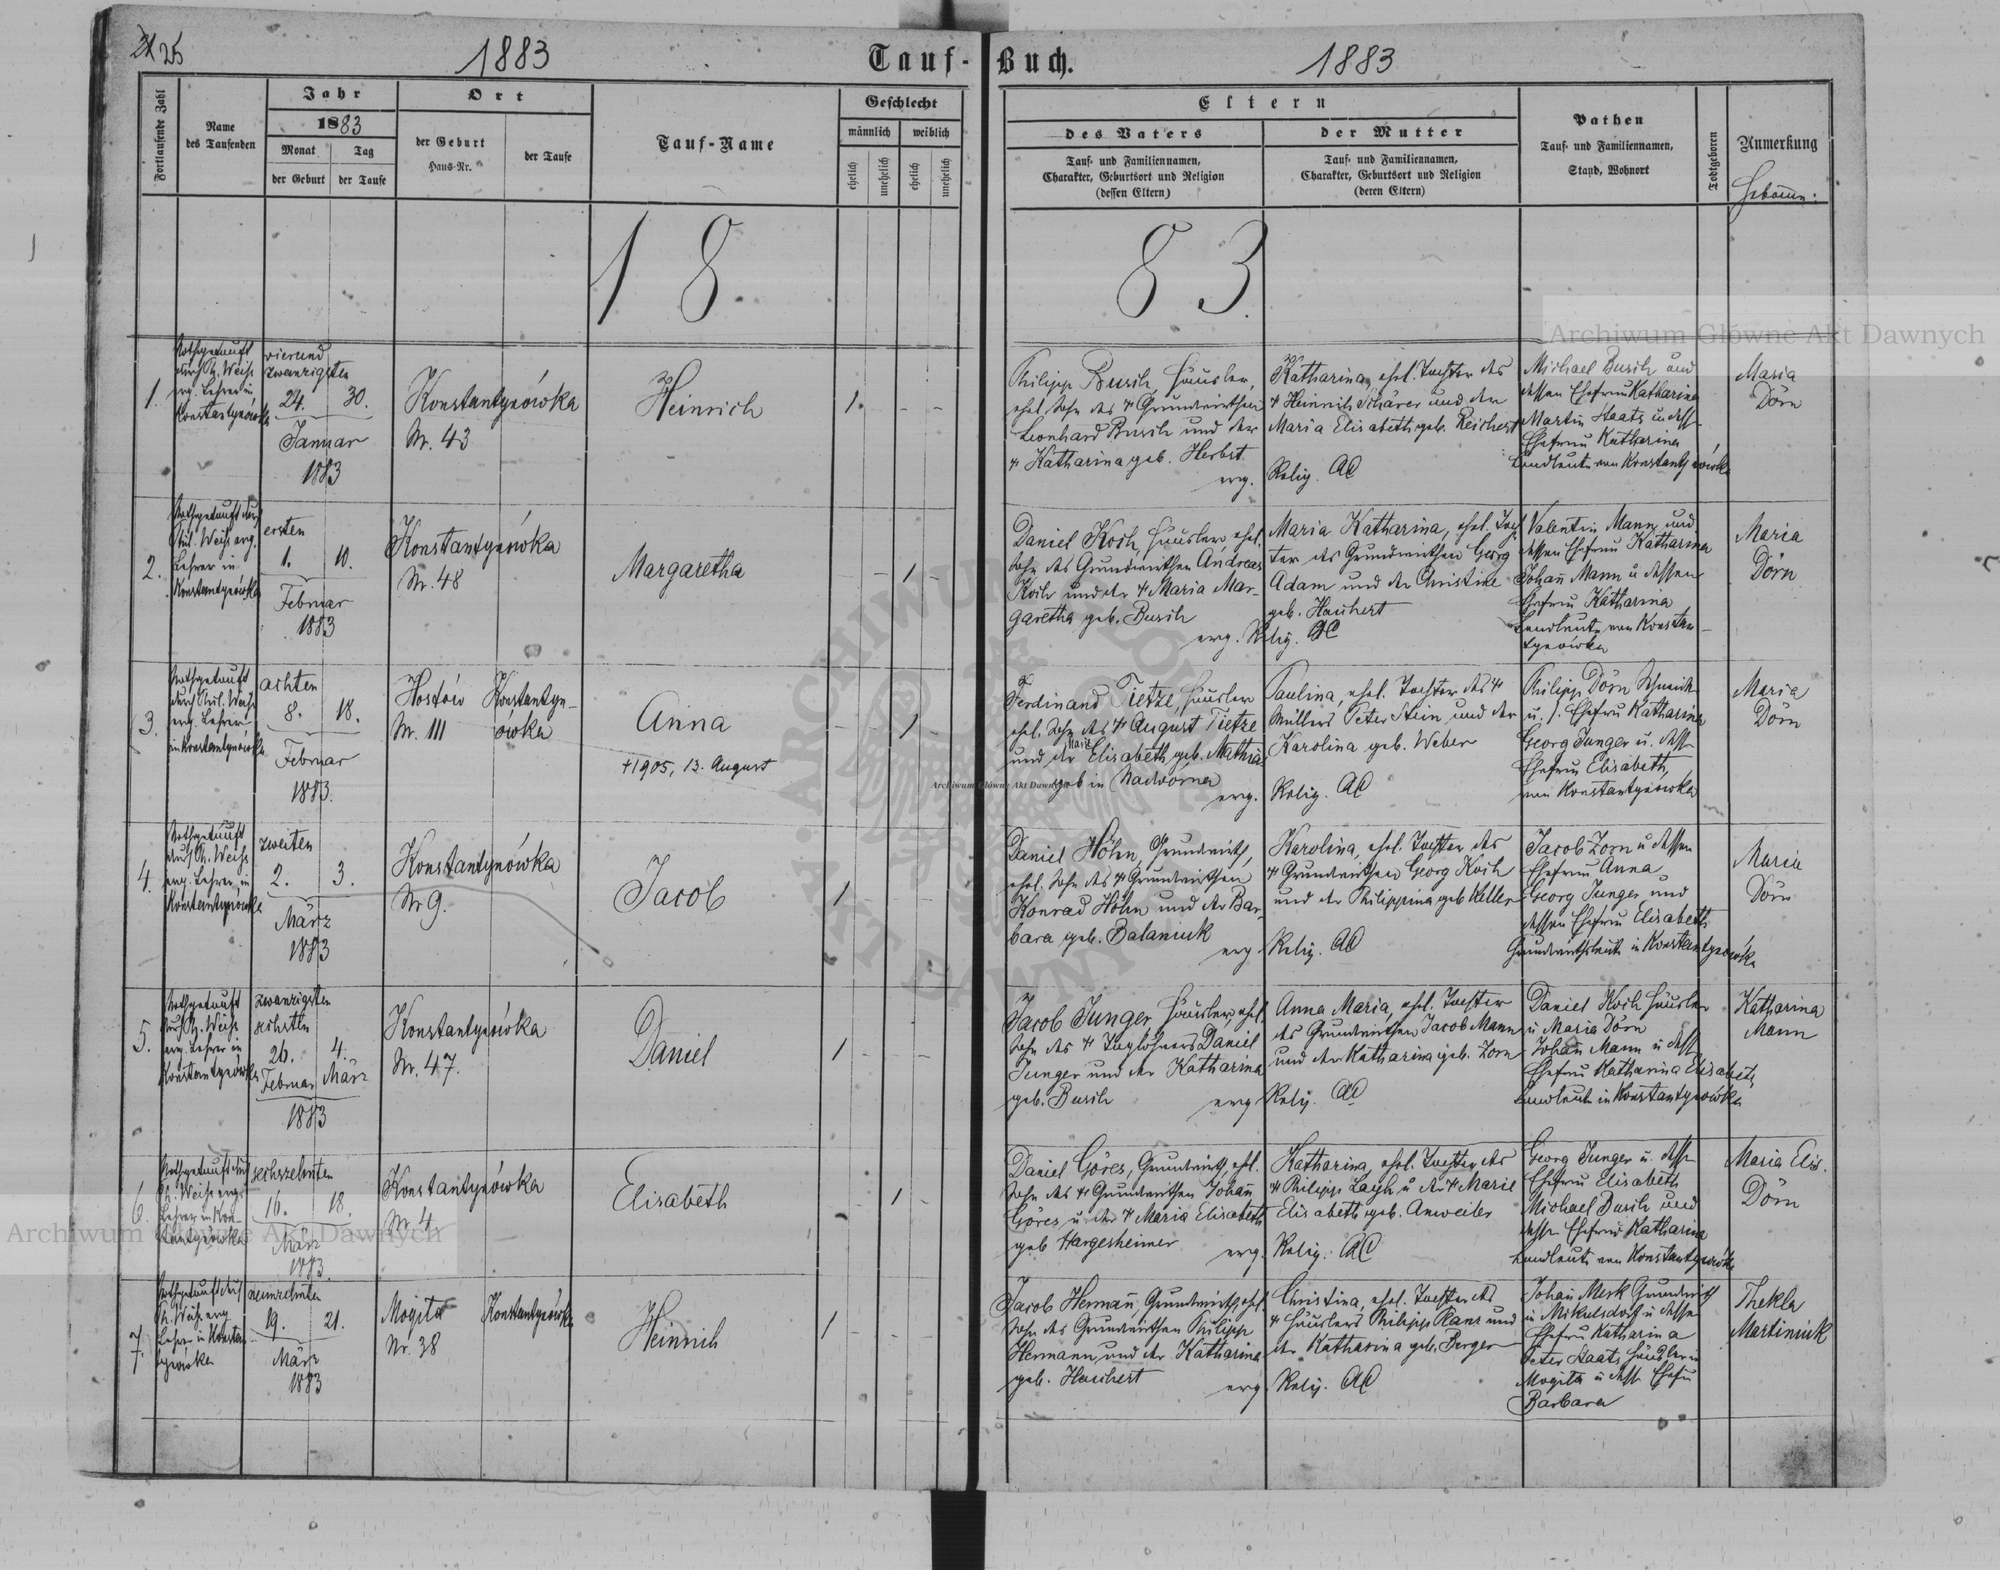 25
1883
Tauf-Buch.
1883
Fortlaufende Zahl
Name
des Taufenden
Jahr
1883
Monat
Tag
der Geburt
der Taufe
Ort
der Geburt
Haus-Nr.
der Taufe
Tauf-Name
Geschlecht
männlich
weiblich
ehelich
unehelich
ehelich
unehelich
Eltern
des Vaters
Tauf- und Familiennamen,
Charakter, Geburtsort und Religion
(dessen Eltern)
der Mutter
Tauf- und Familiennamen,
Charakter, Geburtsort und Religion
(deren Eltern)
Pathen
Tauf- und Familiennamen,
Stand, Wohnort
Todtgeboren
Anmerkung
Hebamme:
18
83
1.
Nothgetauft
durch Th. Weihs
evg. Lehrer in
Konstantynówka
vierund
zwanzigsten
24. 30.
Januar
1883
Konstantynówka
Nr. 43
Heinrich
1. - -
Philipp Busch, Häusler,
ehel. Sohn des † Grundwirthen
Leonhard Busch und der
† Katharina geb. Herbst
evg.
Katharina, ehel. Tochter des
† Heinrich Schärer und der
Maria Elisabeth geb. Reichert
Relig. AC
Michael Busch und
dessen Ehefrau Katharina
Martin Staats u. dess
Ehefrau Katharina
Landleute von Konstantynówka
Maria
Dörn
2.
Nothgetauft durch
Weihs evg.
Lehrer in
Konstantynówka
ersten
1. 10.
Februar
1883
Konstantynówka
Nr. 48
Margaretha
- 1 -
Daniel Koch, Häusler, ehel.
Sohn des Grundwirthen Andreas
Koch und der † Maria Mar-
garetha geb. Busch
evg.
Maria Katharina, ehel. Toch-
ter des Grundwirthen Georg
Adam und der Christine
geb. Haubert
Relig. AC
Valentin Mann und
dessen Ehefrau Katharina
Johann Mann u dessen
Ehefrau Katharina
Landleute von Konstan-
tynówka
Maria
Dörn
3.
Nothgetauft
durch Weihs
evg. Lehrer
in Konstantynówka
achten
8. 18.
Februar
1883.
Hostów
Nr. 111
Konstantyn-
ówka
Anna
†1905, 13. August
1
Ferdinand Tietze, Häusler
ehel. Sohn des † August Tietze
und der Maria Elisabeth geb. Mathias
geb in Nadworna
evg.
Paulina, ehel. Tochter des †
Müllers Peter Stein und der
Karolina geb. Weber
Relig. AC
Philipp Dörn
u. s. Ehefrau Katharina
Georg Junger u. dess
Ehefrau Elisabeth,
von Konstantynówka
Maria
Dörn
4.
Nothgetauft
durch Th. Weihs
evg. Lehrer in
Konstantynówka
zweiten
2. 3.
März
1883
Konstantynówka
Nr 9.
Jacob
1 - -
Daniel Höhn, Grundwirth,
ehel. Sohn des † Grundwirthen
Konrad Höhn und der Bar-
bara geb. Balaniuk
evg.
Karolina, ehel. Tochter des
† Grundwirthen Georg Koch
und der Philippina geb Keller
Relig. AC
Jacob Zorn u dessen
Ehefrau Anna
Georg Junger und
dessen Ehefrau Elisabeth
Grundwirthsleute in Konstantynówka
Maria
Dörn
5.
Nothgetauft
durch Th. Weihs
evg. Lehrer in
Konstantynówka
zwanzigsten
sechsten
26. 4.
Februar März
1883
Konstantynówka
Nr. 47.
Daniel
1 - -
Jacob Junger Häusler, ehel.
Sohn des † Taglöhners Daniel
Junger und der Katharina
geb. Busch
evg
Anna Maria, ehel. Tochter
des Grundwirthen Jacob Mann
und der Katharina geb. Zorn
Relig. AC
Daniel Koch Häusler
u Maria Dörn
Johann Mann u dess
Ehefrau Katharina Elisabeth
Landleute in Konstantynówka
Katharina
Mann
6.
Nothgetauft durch
Th. Weihs evg
Lehrer in Kon-
stantynówka
sechszehnten
16. 18.
März
1883.
Konstantynówka
Nr. 4
Elisabeth
- - 1 -
Daniel Göres, Grundwirth, ehel.
Sohn des † Grundwirthen Johann
Göres u der † Maria Elisabeth
geb Hargesheimer
evg.
Katharina, ehel. Tochter des
† Philipp Layh u der † Marie
Elisabeth geb. Anweiler
Relig. AC
Georg Junger u. dess
Ehefrau Elisabeth
Michael Busch und
dess Ehefrau Katharina
Landleute von Konstantynówka
Maria Elis.
Dörn
7.
Nothgetauft durch
Th. Weihs evg
Lehrer in Konstan-
tynówka
neunzehnten
19. 21.
März
1883
Mogila
Nr. 38
Konstantynówka
Heinrich
1 - -
Jacob Hermann, Grundwirth, ehel.
Sohn des Grundwirthen Philipp
Hermann und der Katharina
geb. Haubert
evg.
Christina, ehel. Tochter des
† Häuslers Philipp Kanz und
der Katharina geb. Berger
Relig. AC
Johann Merk Grundwirth
in Mikulsdorf u dessen
Ehefrau Katharina
Peter Staats Häusler in
Mogila u dess Ehefrau
Barbara
Thekla
Martiniuk
Archiwum Główne Akt Dawnych
Archiwum Główne Akt Dawnych
Archiwum Główne Akt Dawnych